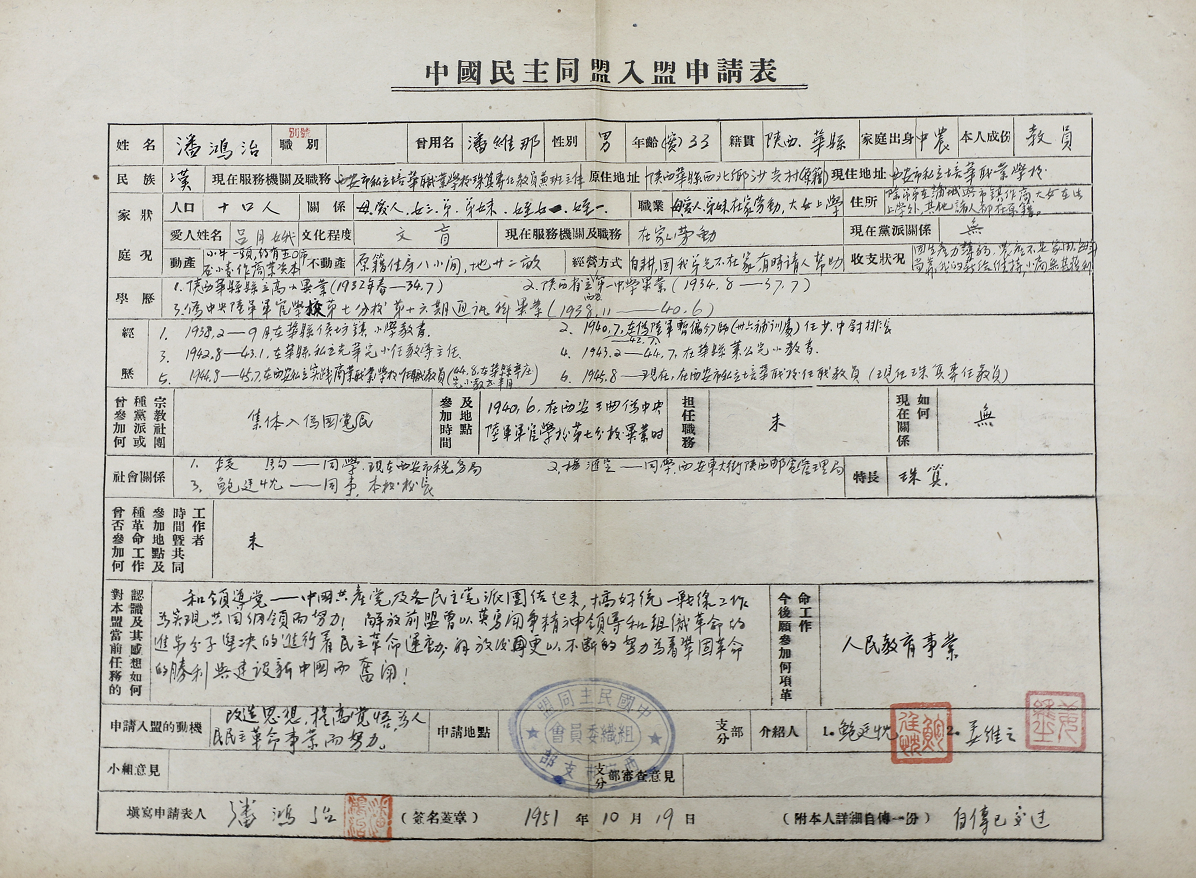 中國民主同盟入盟申請表
姓名 潘鴻治 職別 別號 曾用名 潘維那 性別 男 年齡(歲)33 籍貫 陝西 華縣 家庭出身 中農 本人成份 教員
民族 漢 現在服務機關及職務 西安市私立培華職業學校珠算專任教員兼班主任 原住地址 陝西華縣西北鄉沙 村(原籍) 現住地址 西安市私立培華職業學校
家庭狀況 人口 十口人 關係 母.愛人.女三.弟.弟妹.姪女一.姪一. 職業 母愛人.弟妹在家勞動,大女上學 住所 上學外,其他諸人都在原籍。
愛人姓名 呂月娥 文化程度 文盲 現在服務機關及職務 在家勞動 現在黨派關係 無
動產 小牛一頭,約有五〇 作商業資本 不動產 原籍住房八小間,地廿二畝 經營方式 自耕,因我弟兄不在家有時請人幫助 收支狀況
學歷 1.陝西華縣縣立高小畢業(1932年春—34.7) 2.陝西省立第一中學畢業(1934.8—37.7)
3.僞中央陸軍軍官學校第七分校第十六期通訊科畢業(1938.11——40.6) 西安
經歷 1. 1938.2—9月在華縣 坊鎮小學教書. 2. 1940.7.在僞陸軍暫編 師(卅六補訓處)任少.中尉排長 —42.7
3. 1942.8—43.1.在華縣私立克華完小任教導主任. 4. 1943.2—44.7.在華縣 完小教書.
5. 1944.8—45.7.在西安私立實踐商業職業學校任職教員(44.8.在華縣 完小教書半月) 6. 1945.8—現在,在西安市私立培華職校任職教員(現任珠算專任教員)
曾參加何種黨派或宗教社團 集体入僞國党区 參加時間及地點 1940.6.在西安王曲僞中央陸軍軍官學校第七分校畢業時 担任職務 未 現在關係如何 無
社會關係 1. 駒——同學.現在西安市稅務局 2.楊 ——同學.西安東大街陝西郵電管理局
3. 鮑廷忱——同事.本校校長 特長 珠算.
曾否參加何種革命工作參加地點及時間暨共同工作者 未
對本盟當前任務的認識及其感想如何 和領導党——中國共產党及各民主党派團結起來,搞好統一戰線工作
爲實現共同綱領而努力!解放前盟曾以英勇鬥爭精神領導和組織革命的
進步分子坚决的進行着民主革命運動.解放後再更以不斷的努力為着鞏固革命
的勝利與建設新中國而奮鬥!
今後願參加何項革命工作 人民教育事業
申請入盟的動機 改造思想,提高覺悟.为人
民民主革命事業而努力. 申請地點 支分部 介紹人 1.鮑廷忱 2.姜維之
中國民主同盟
組織委員會
西安市支部
小組意見 支分部審查意見
填寫申請表人 潘鴻治 (簽名蓋章) 1951年10月19日 (附本人詳細自傳一份) 自傳已交过